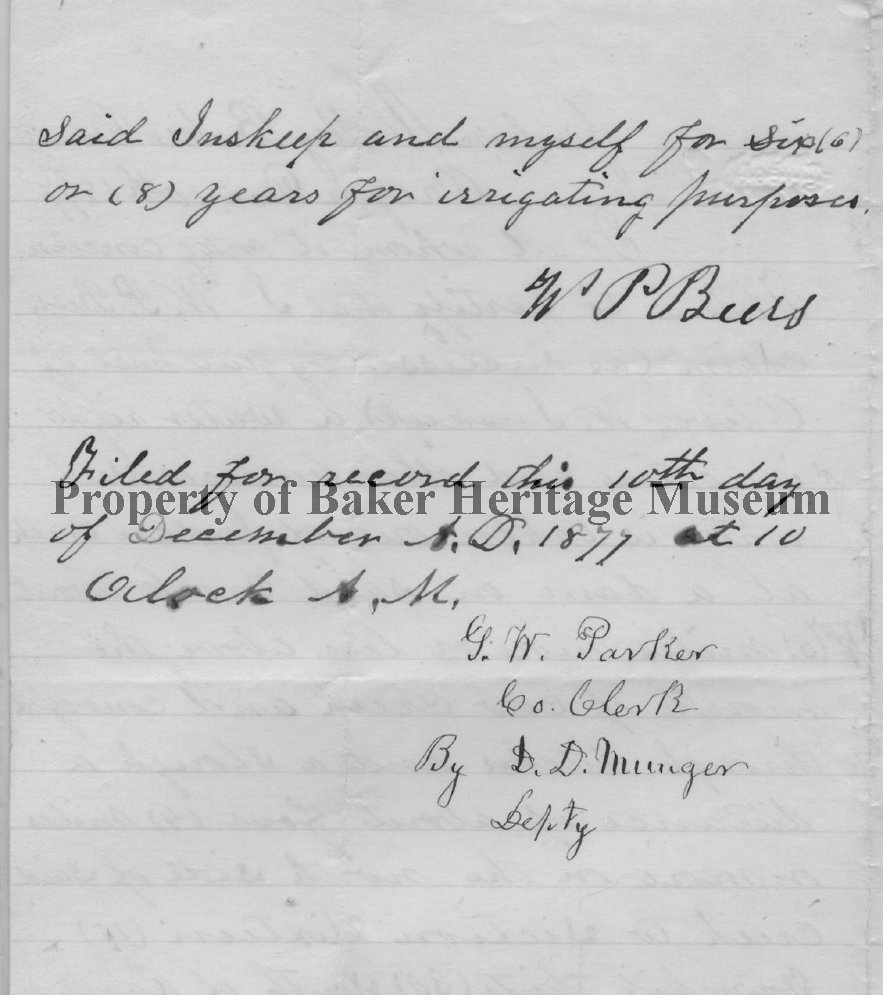 said Inskeep and myself for six (6)
or (8) years for irrigating purposes.
Wm P Beers
Filed for record this 10th day
Property of Baker Heritage Museum
of December A.D. 1877 at 10
Oclock A.M.
G. W. Parker
Co. Clerk
By D. D. Munger
Depty